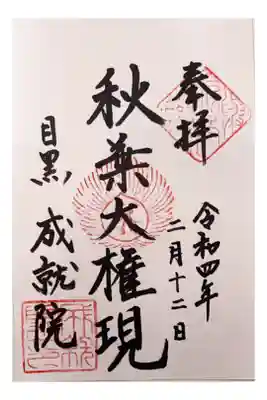 奉拝
令和四年
二月十二日
秋葉大権現
目黒 成就院